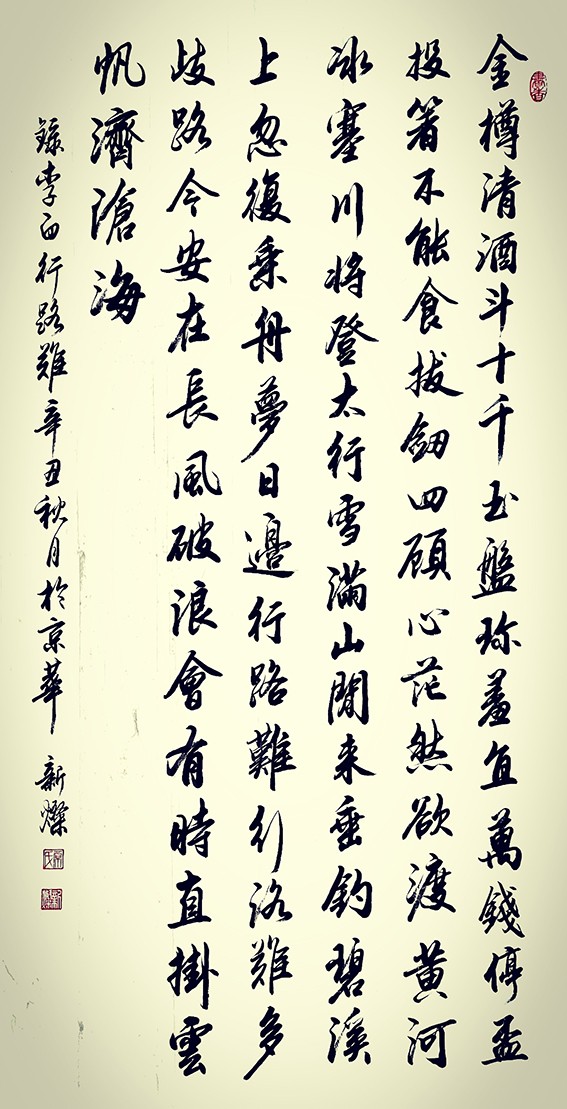 金樽清酒斗十千玉盤珍羞直萬錢停盃
投箸不能食拔劍四顧心茫然欲渡黃河
冰塞川將登太行雪滿山閒来垂釣碧溪
上忽復乘舟夢日邊行路難行路難多
歧路今安在長風破浪會有時直掛雲
帆濟滄海
錄李白行路難辛丑秋月於京華 新燦